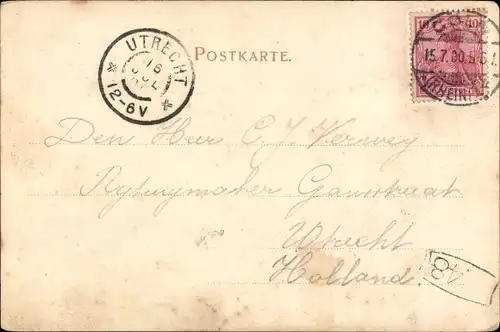 POSTKARTE.
UTRECHT
16
JUL
* 12-6V *
10 10
15.7.00.5-6
(RHEIN)
Den Heer C. J. Verwey
Rytuigmaker Gansstraat
Utrecht
Holland.
48